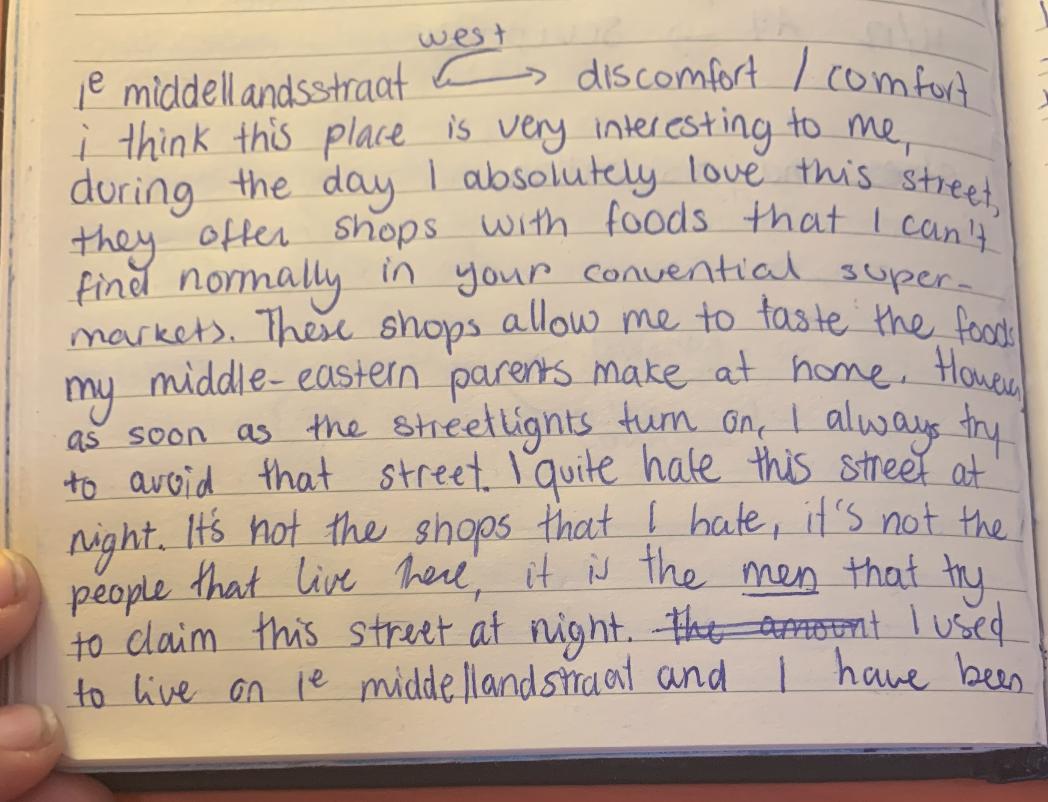 west
1e middellandsstraat ⟷ discomfort / comfort
i think this place is very interesting to me,
during the day I absolutely love this street,
they offer shops with foods that I can't
find normally in your convential super-
markets. These shops allow me to taste the foods
my middle-eastern parents make at home. However,
as soon as the streetlights turn on, I always try
to avoid that street. I quite hate this street at
night. It's not the shops that I hate, it's not the
people that live here, it is the men that try
to claim this street at night. the amount I used
to live on 1e middellandstraat and I have been